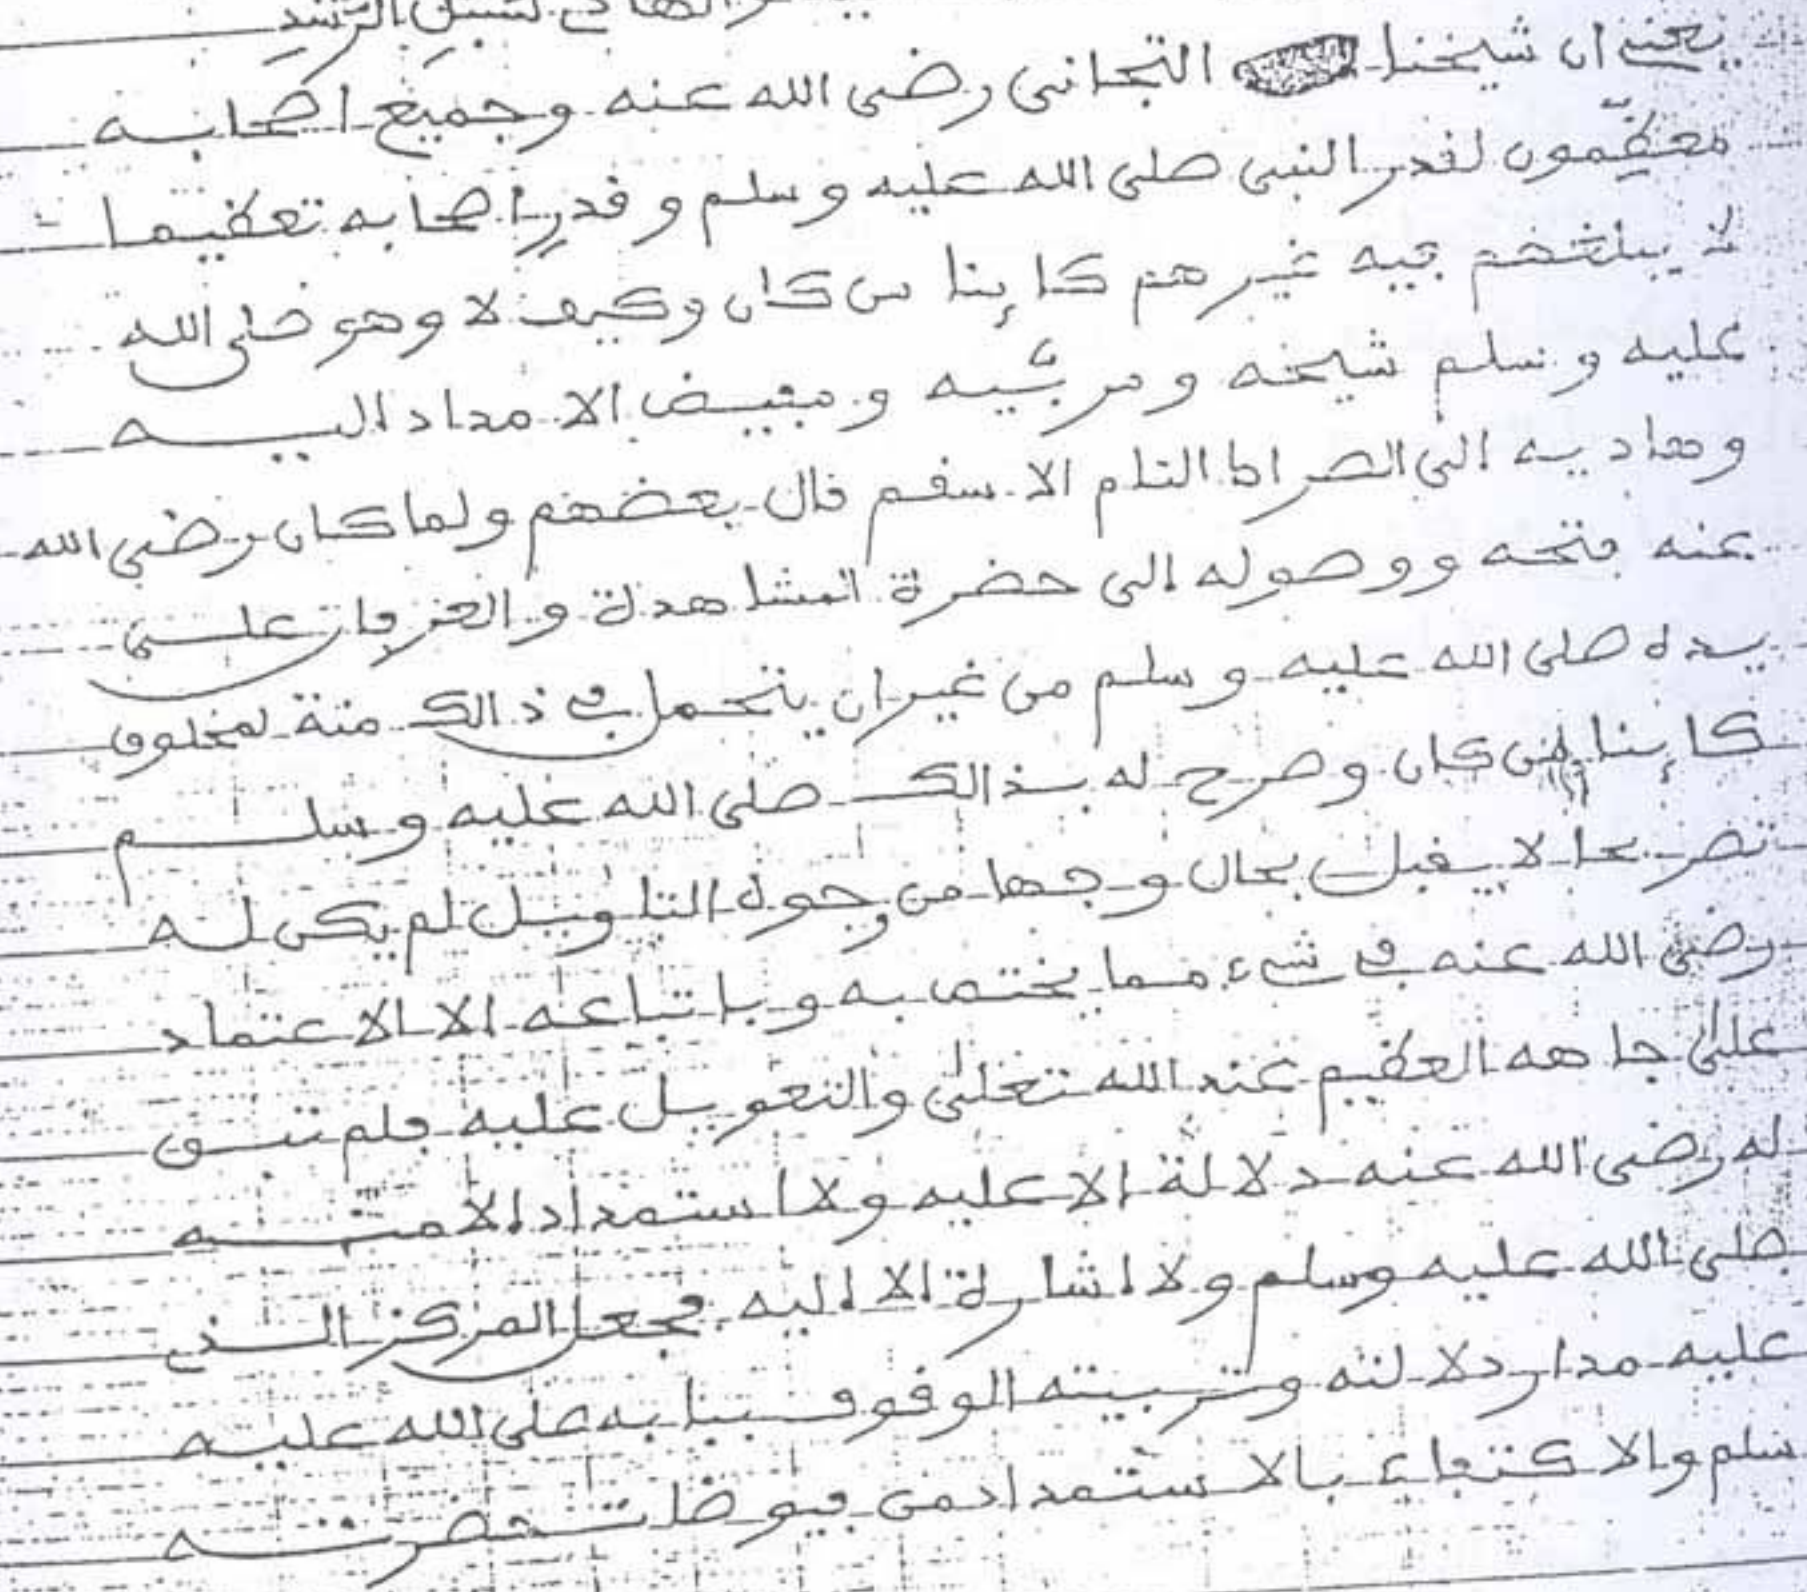 لسبل الرشد
يعني ان شيخنا التجاني رضى الله عنه وجميع اصحابه
معظّمون لقدر النبى صلى الله عليه وسلم وقدر اصحابه تعظيما
لا يبلغهم فيه غيرهم كاينا من كان وكيف لا وهو صلى الله
عليه وسلم شيخه ومربّيه ومفيض الامداد اليه
وهاديه الى الصراط التام الاسقم قال بعضهم ولما كان رضى الله
عنه فتحه ووصوله الى حضرة المشاهدة والعرفان على
يده صلى الله عليه وسلم من غير ان يتحمل في ذالك منة لمخلوق
كاينا من كان وصرح له بذالك صلى الله عليه وسلم
تصريحا لا يقبل بحال وجها من وجوه التاويل لم يكن له
رضى الله عنه في شيء مما يختص به وباتباعه الا الاعتماد
على جاهه العظيم عند الله تعلى والتعويل عليه فلم تبق
له رضى الله عنه دلالة الا عليه ولا استمداد الا منه
صلى الله عليه وسلم ولا اشارة الا اليه فجعل المركز الذي
عليه مدار دلالته وتربيته الوقوف ببابه صلى الله عليه
سلم والاكتفاء بالاستمداد من فيوضات حضرته